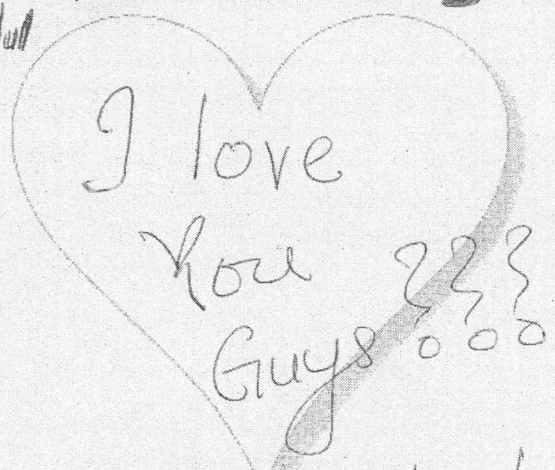 I love
You
Guys ???